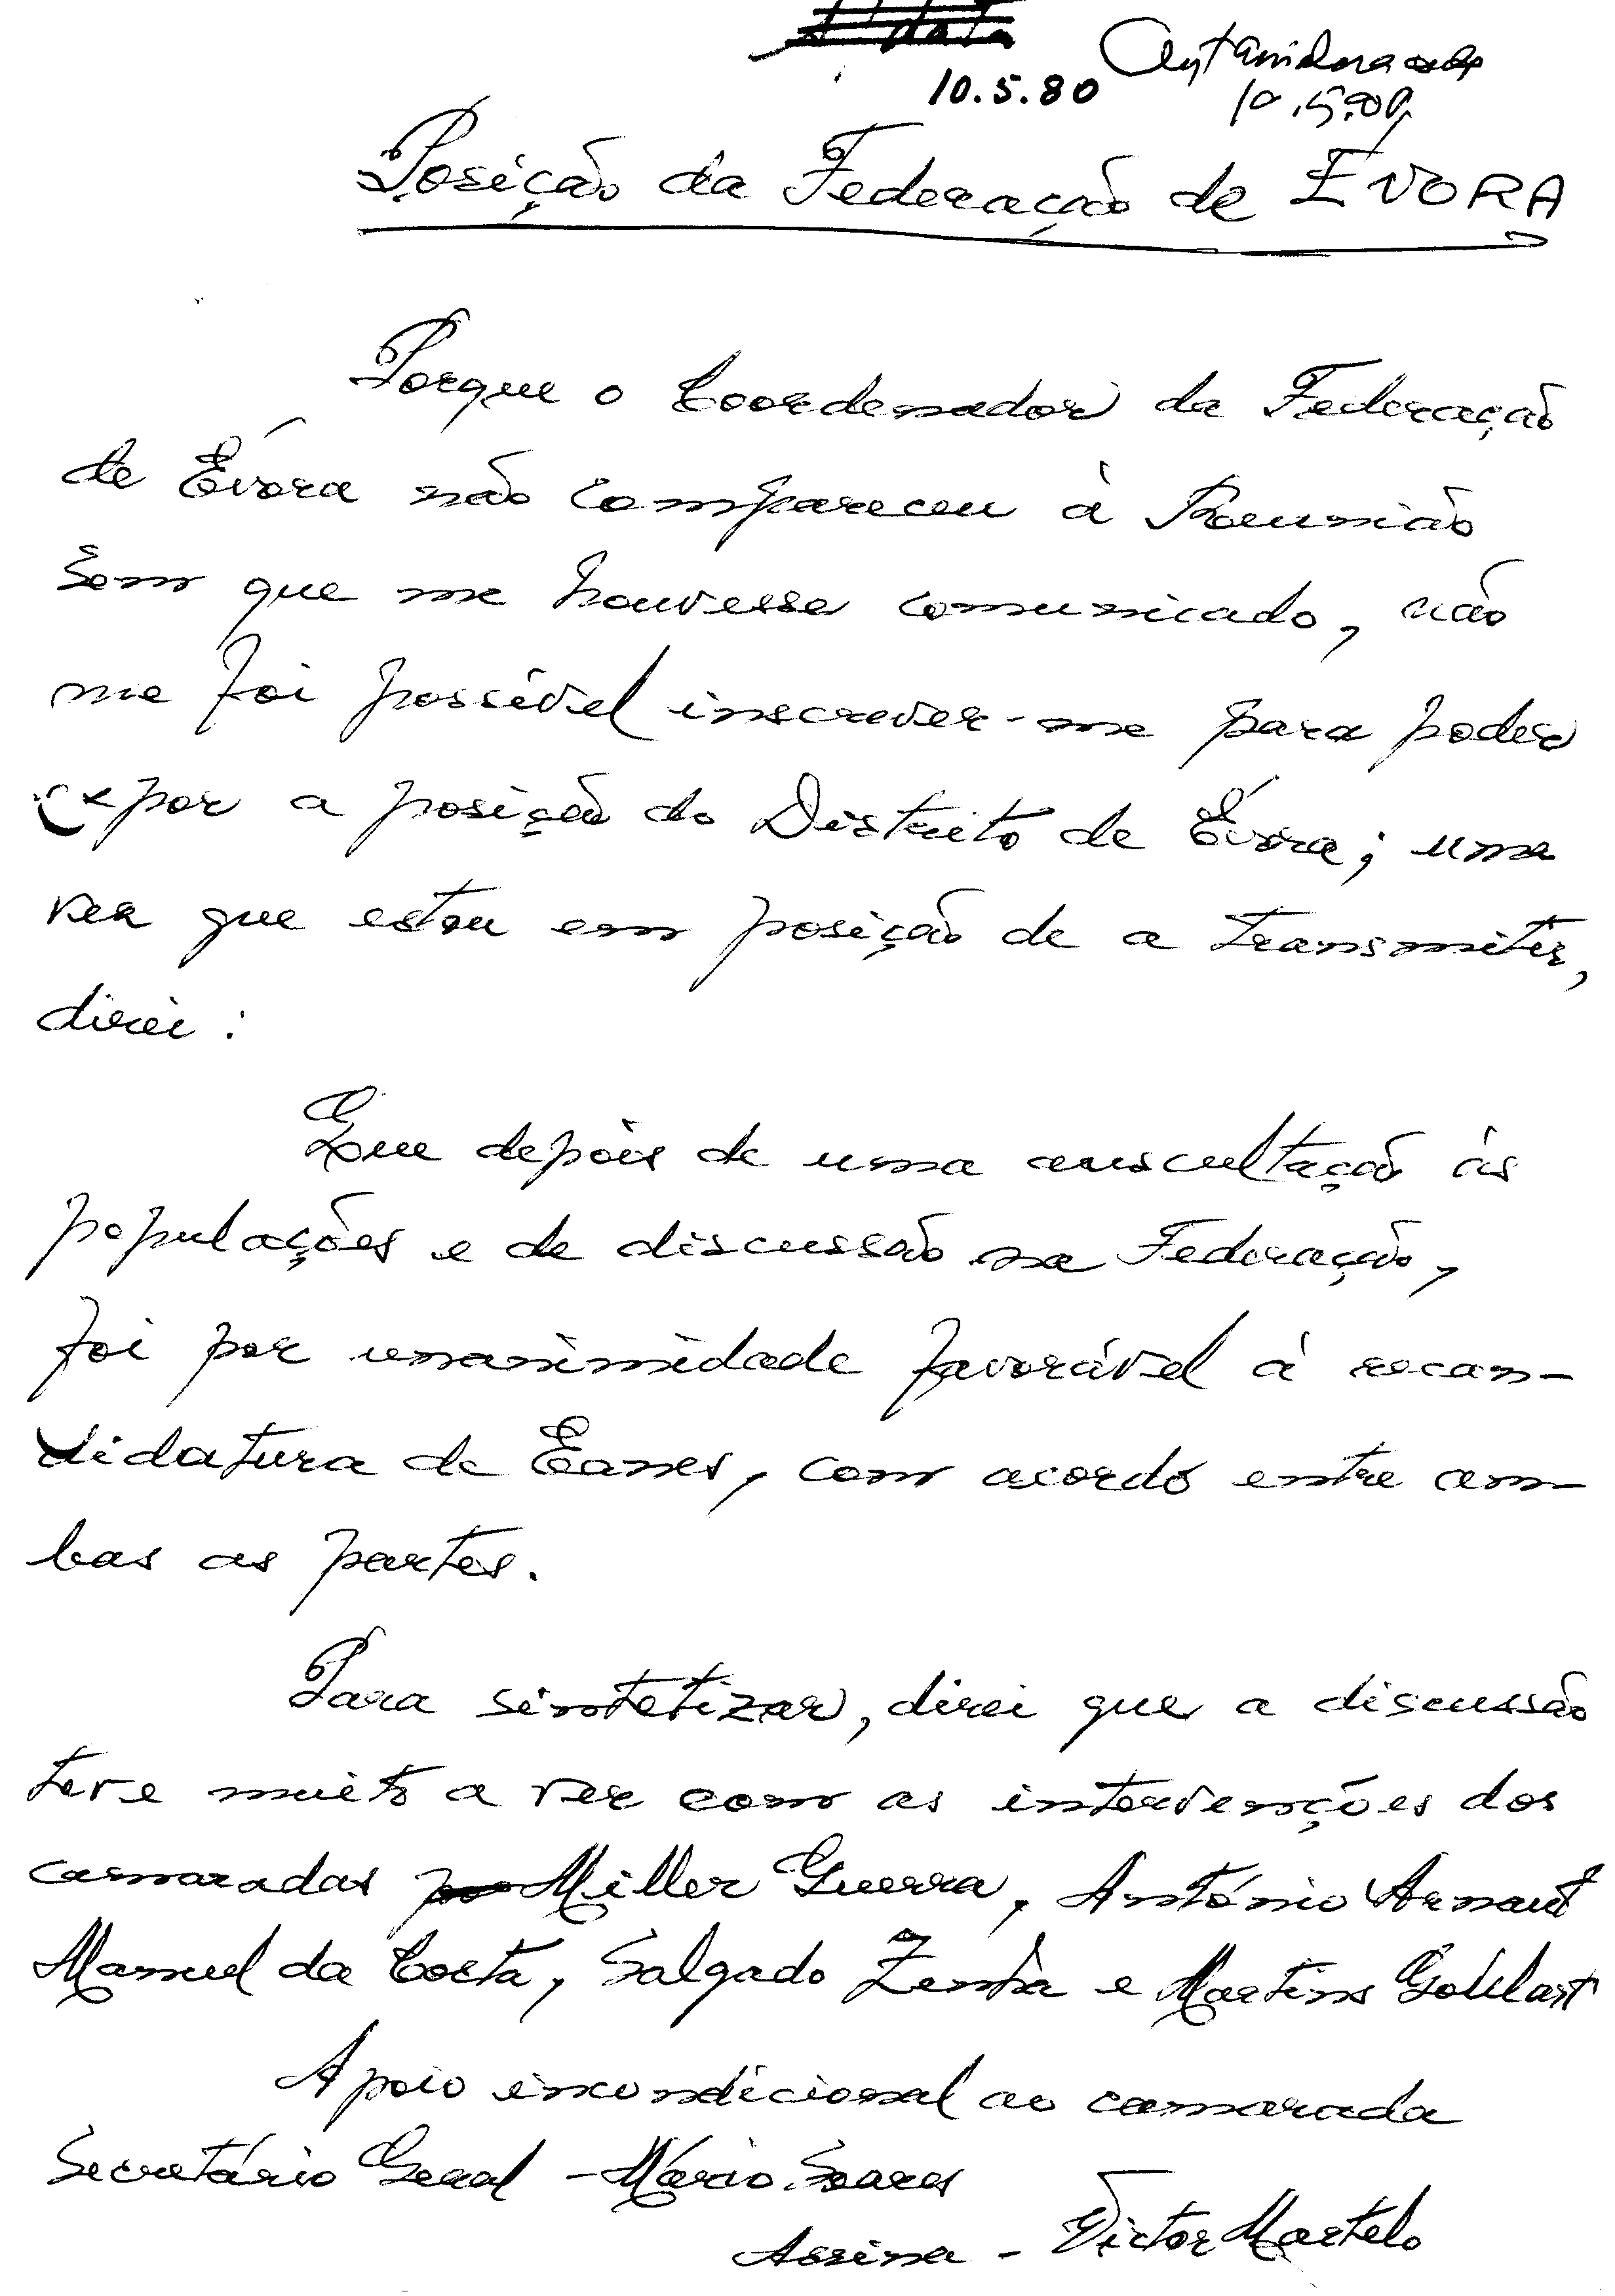 10.5.80
Posição da Federação de ÉVORA
Porque o Coordenador da Federação
de Évora não compareceu à Reunião
sem que me houvesse comunicado, não
me foi possível inscrever-me para poder
expor a posição do Distrito de Évora; uma
vez que estou em posição de a transmitir,
direi:
Que depois de uma auscultação às
populações e de discussão na Federação,
foi por unanimidade favorável à recan-
didatura de Eanes, com acordo entre am-
bas as partes.
Para sintetizar, direi que a discussão
teve muito a ver com as intervenções dos
camaradas Miller Guerra, António Arnaut
Manuel da Costa, Salgado Zenha e Martins Goulart
Apoio incondicional ao camarada
Secretário Geral - Mário Soares
Assina - Victor Martelo